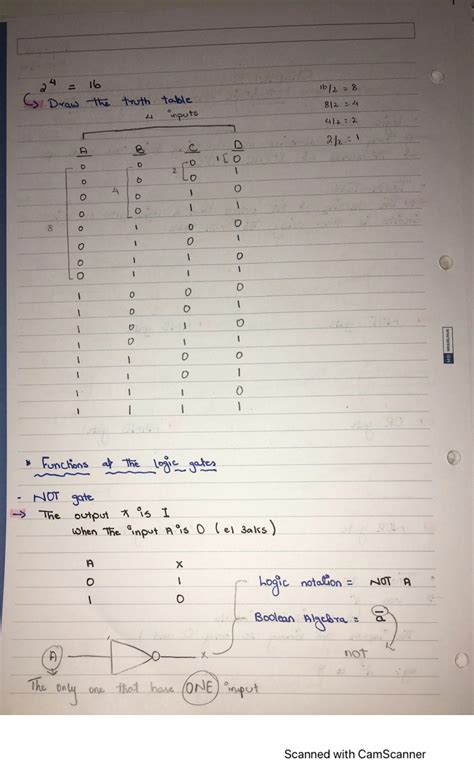 2⁴ = 16
16/2 = 8
Draw the truth table
8/2 = 4
4 inputs
4/2 = 2
2/2 = 1
A B C D
0 0 0 1 0
0 0 2 0 1
0 4 0 1 0
0 0 1 1
8 0 1 0 0
0 1 0 1
0 1 1 0
0 1 1 1
1 0 0 0
1 0 0 1
1 0 1 0
1 0 1 1
1 1 0 0
1 1 0 1
1 1 1 0
1 1 1 1
* Functions of the logic gates
- NOT gate
→ The output x is 1
when the input A is 0 (el 3aks)
A X
0 1
1 0
Logic notation = NOT A
Boolean Algebra = a̅
not
A x
The only one that have ONE input
Scanned with CamScanner